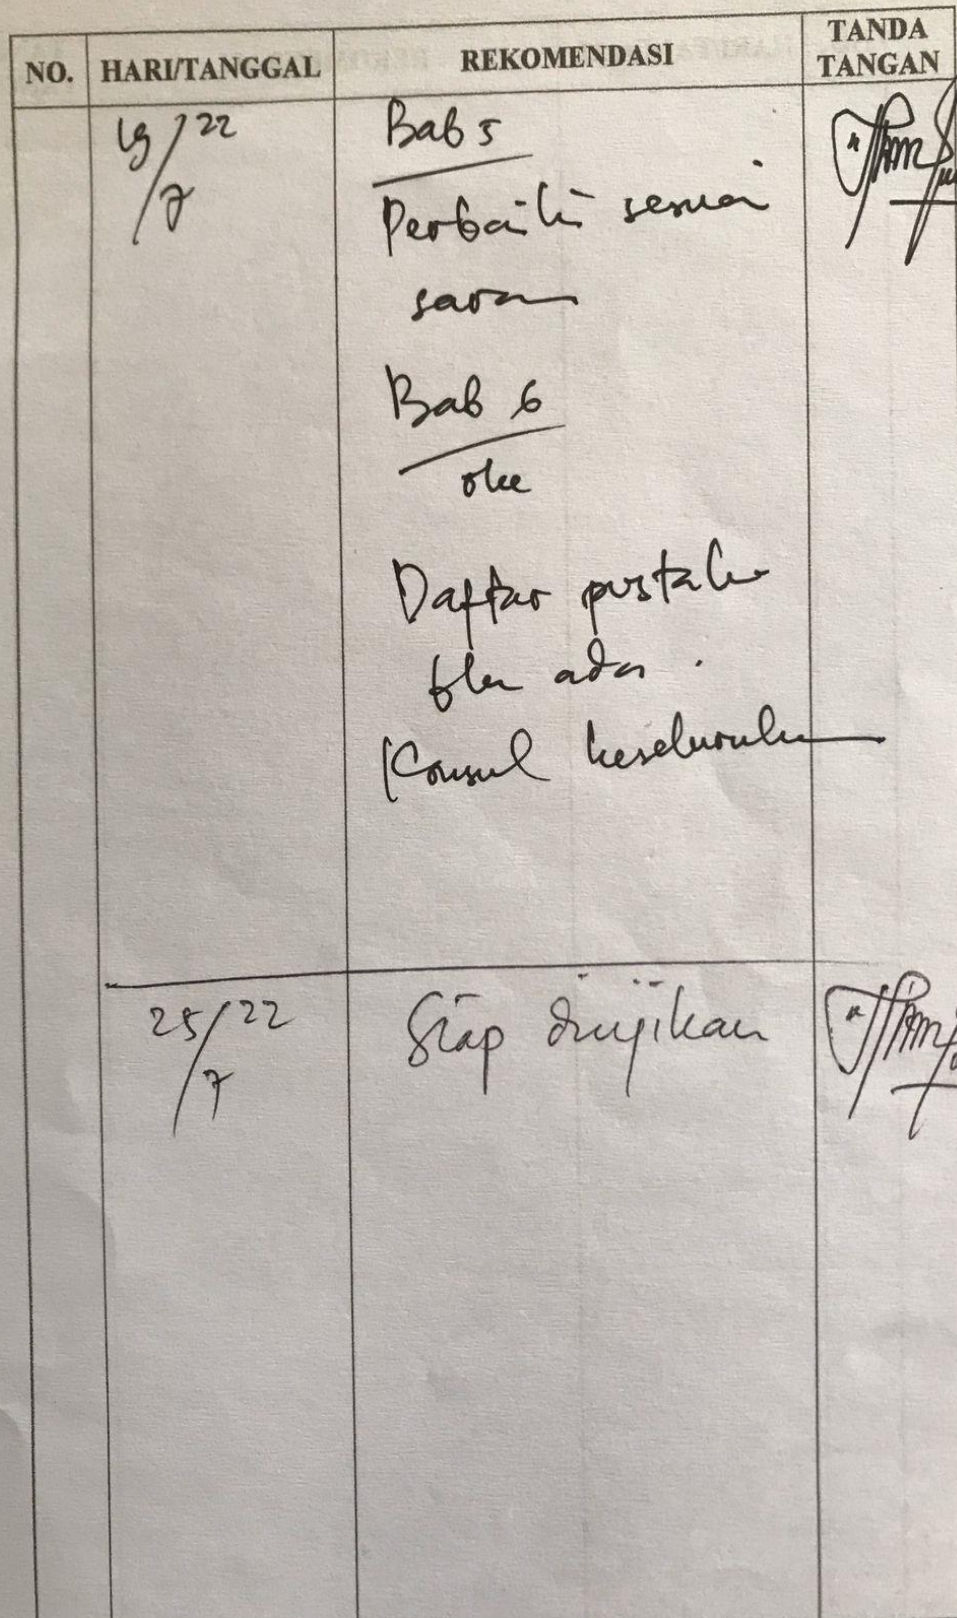 NO. HARI/TANGGAL REKOMENDASI TANDA TANGAN
19/7 22 Bab 5
Perbaiki sesuai
saran
Bab 6
oke
Daftar pustaka
blm ada.
Konsul keseluruhan
25/7 22 Siap diujikan